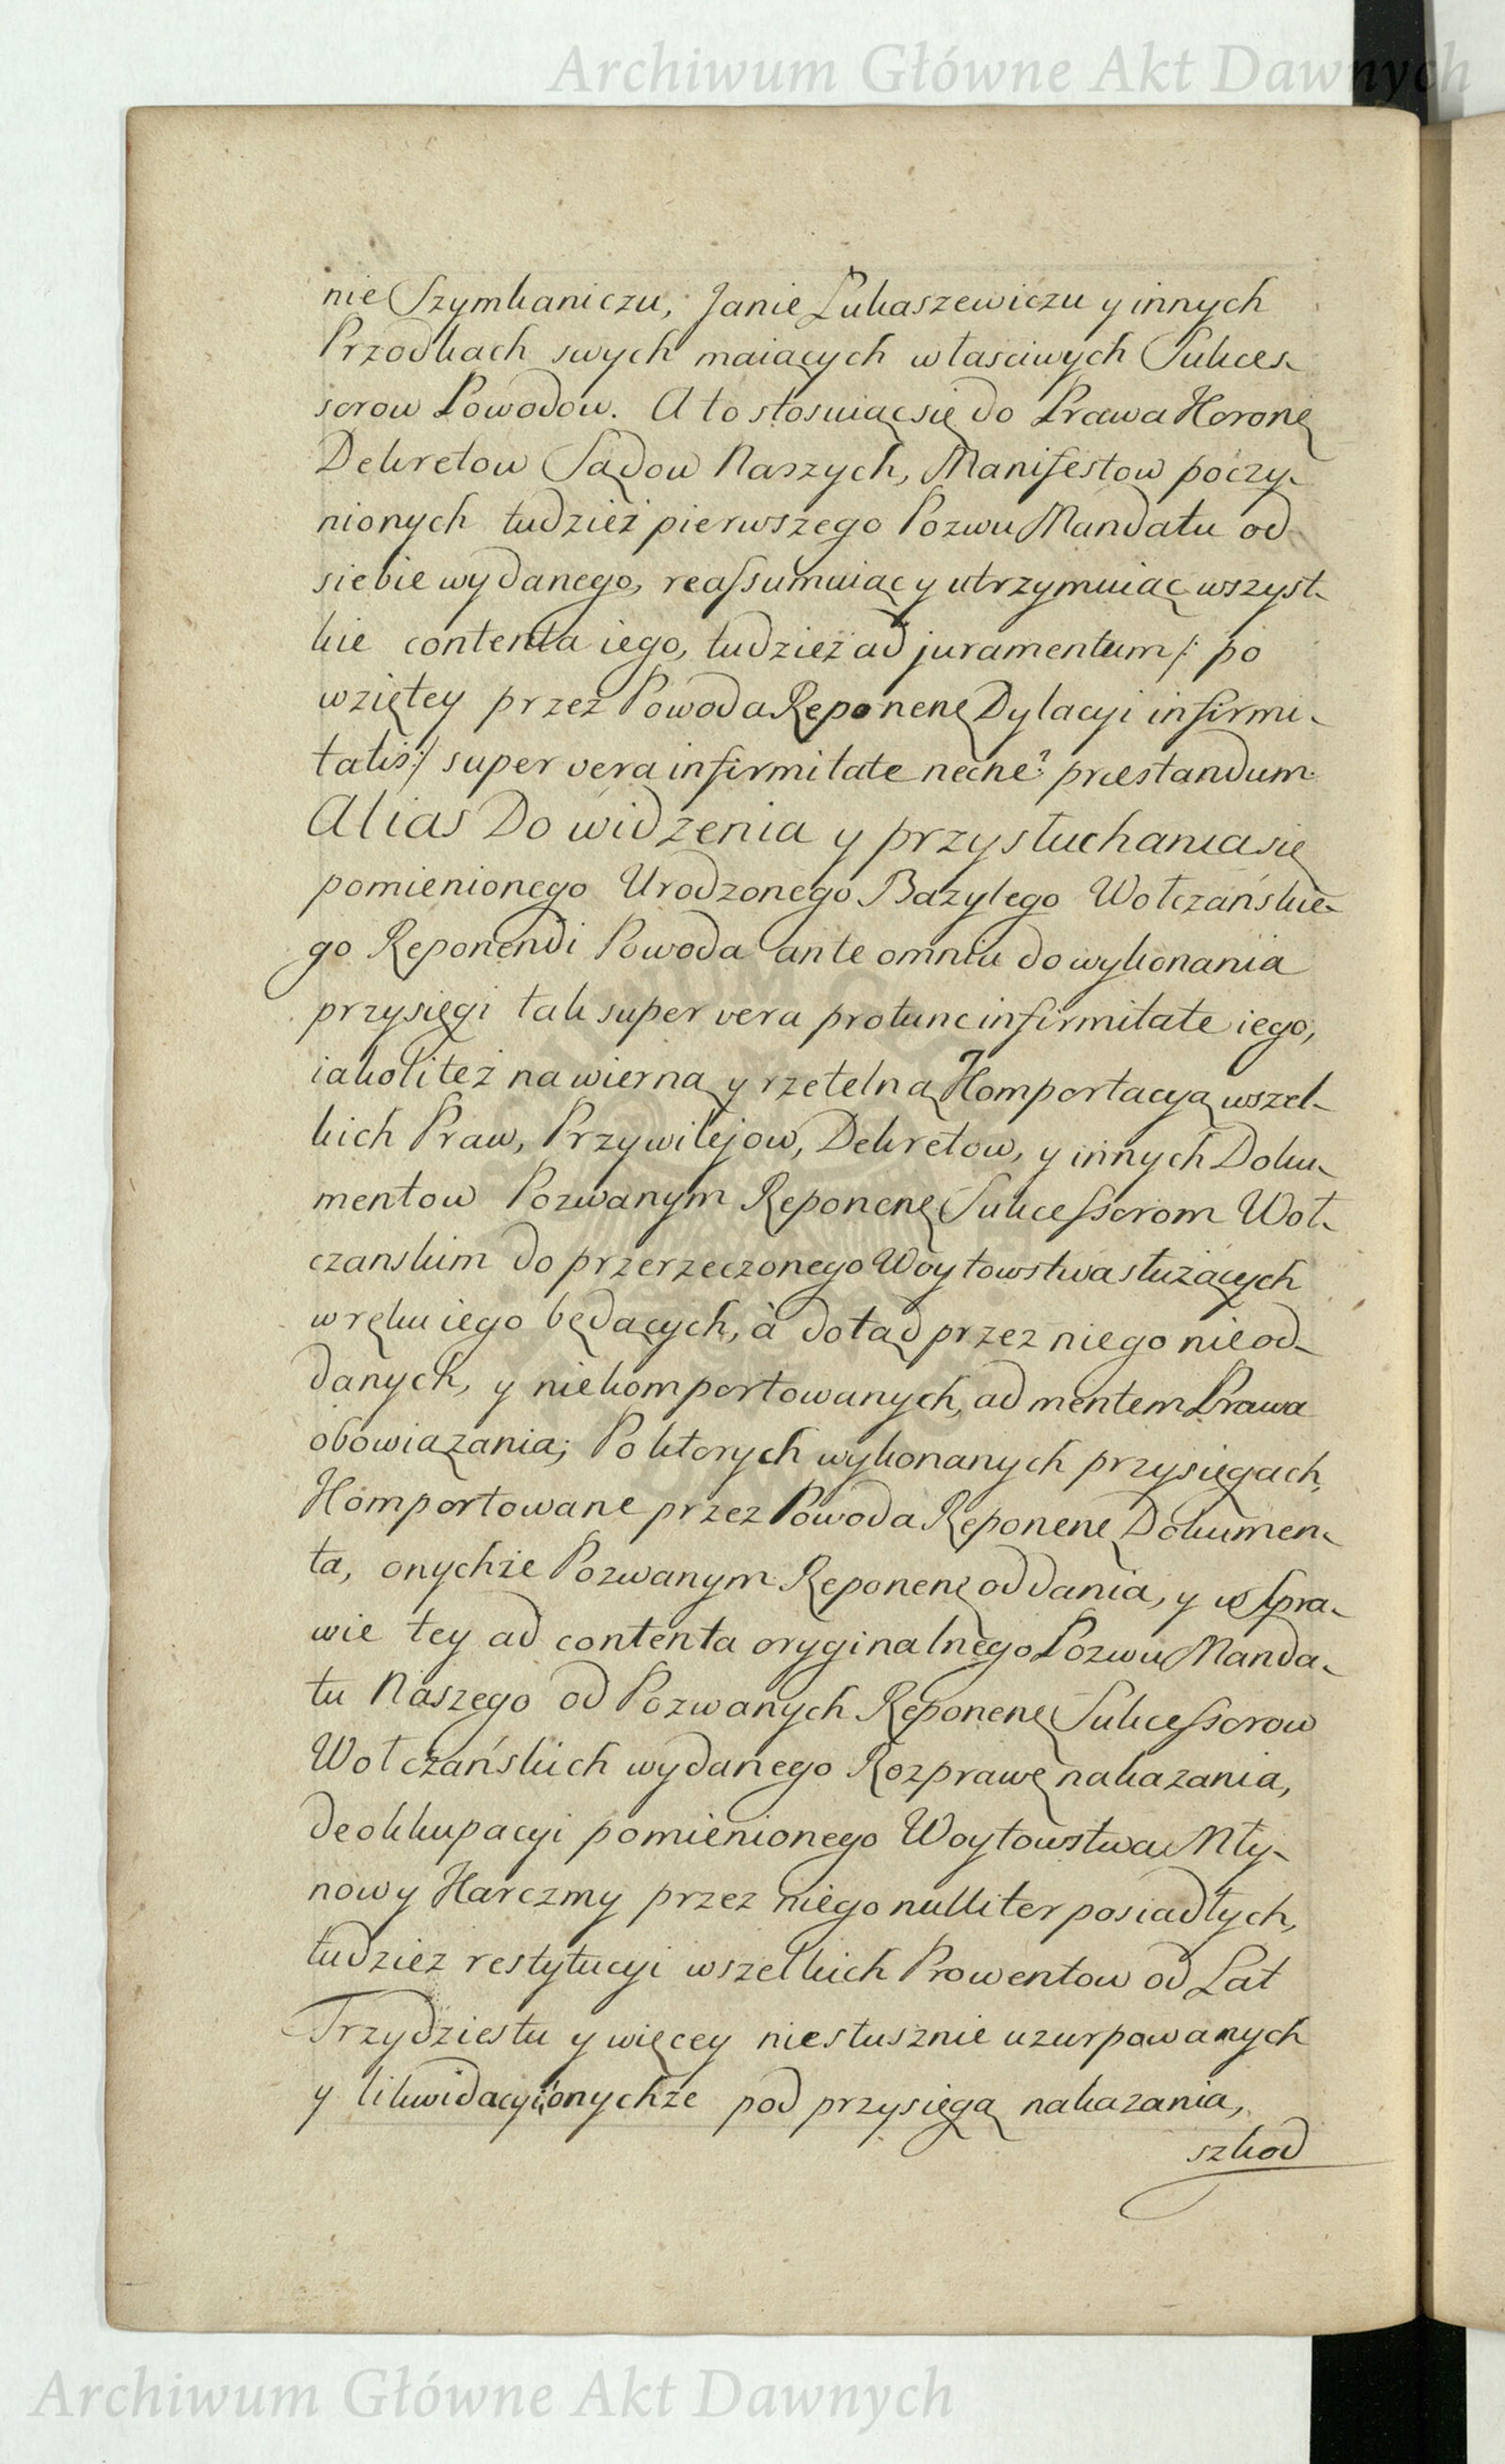 Archiwum Główne Akt Dawnych
nie Szymkaniczu, Janie Łukaszewiczu y innych
Przodkach swych maiących właściwych Sukces-
sorow Powodow. A to stosuiąc się do Prawa Koronę
Dekretow Sądow Naszych, Manifestow poczy-
nionych tudzież pierwszego Pozwu Mandatu od
siebie wydanego, reassumuiąc y utrzymuiąc wszyst-
kie contenta iego, tudzież ad juramentum /: po
wziętey przez Powoda Reponenę Dylacyi infirmi-
tatis :/ super vera infirmitate necne? præstandum
Alias Do widzenia y przysłuchania się
pomienionego Urodzonego Bazylego Wołczańskie-
go Reponendi Powoda ante omnia do wykonania
przysięgi tak super vera protunc infirmitate iego,
iakoli też na wierną y rzetelną Komportacyą wszel-
kich Praw, Przywilejow, Dekretow, y innych Doku-
mentow Pozwanym Reponenę Sukcessorom Woł-
czanskim do przerzeczonego Woytowstwa służących
w ręku iego będących, à dotąd przez niego nieod-
danych, y niekomportowanych, ad mentem Prawa
obowiązania; Po ktorych wykonanych przysięgach,
Komportowane przez Powoda Reponenę Dokumen-
ta, onychże Pozwanym Reponenę oddania, y w Spra-
wie tey ad contenta oryginalnego Pozwu Manda-
tu Naszego od Pozwanych Reponenę Sukcessorow
Wołczańskich wydanego Rozprawę nakazania,
deokkupacyi pomienionego Woytowstwa Mły-
nowy Karczmy przez niego nulliter posiadłych,
tudziez restytucyi wszelkich Prowentow od Lat
Trzydziestu y więcey niesłusznie uzurpowanych
y likwidacyi onychże pod przysięgą nakazania,
szkod
Archiwum Główne Akt Dawnych